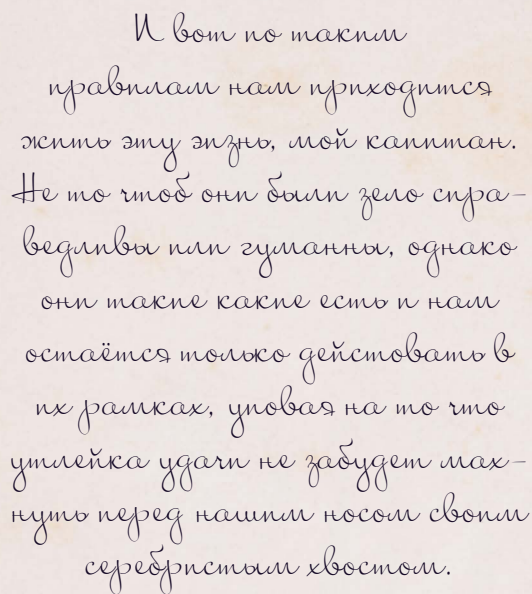 И вот по таким
правилам нам приходится
жить эту эизнь, мой капитан.
Не то чтоб они были зело спра-
ведливы или гуманны, однако
они такие какие есть и нам
остаётся только дейстовать в
их рамках, уповая на то что
утлейка удачи не забудет мах-
нуть перед нашим носом своим
серебристым хвостом.